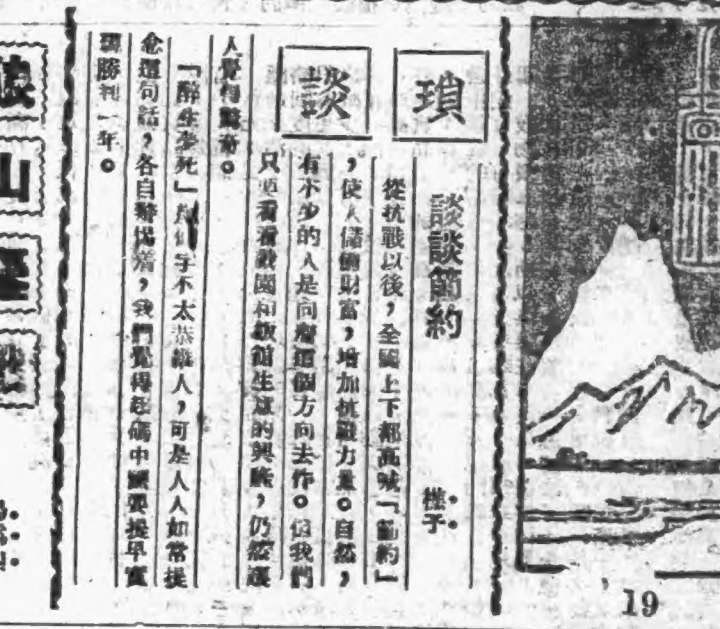 瑣談
談談節約
槿子
從抗戰以後，全國上下都高喊「節約」
，使人儲備財富，增加抗戰力量。自然，
有不少的人是向着這個方向去作。但我們
只要看看戲園和飯館生意的興隆，仍然讓
人覺得驚奇。
「醉生夢死」幾個字不太恭維人，可是人人如常提
念這句話，各自警惕着，我們覺得起碼中國要提早實
現勝利一年。
山
19